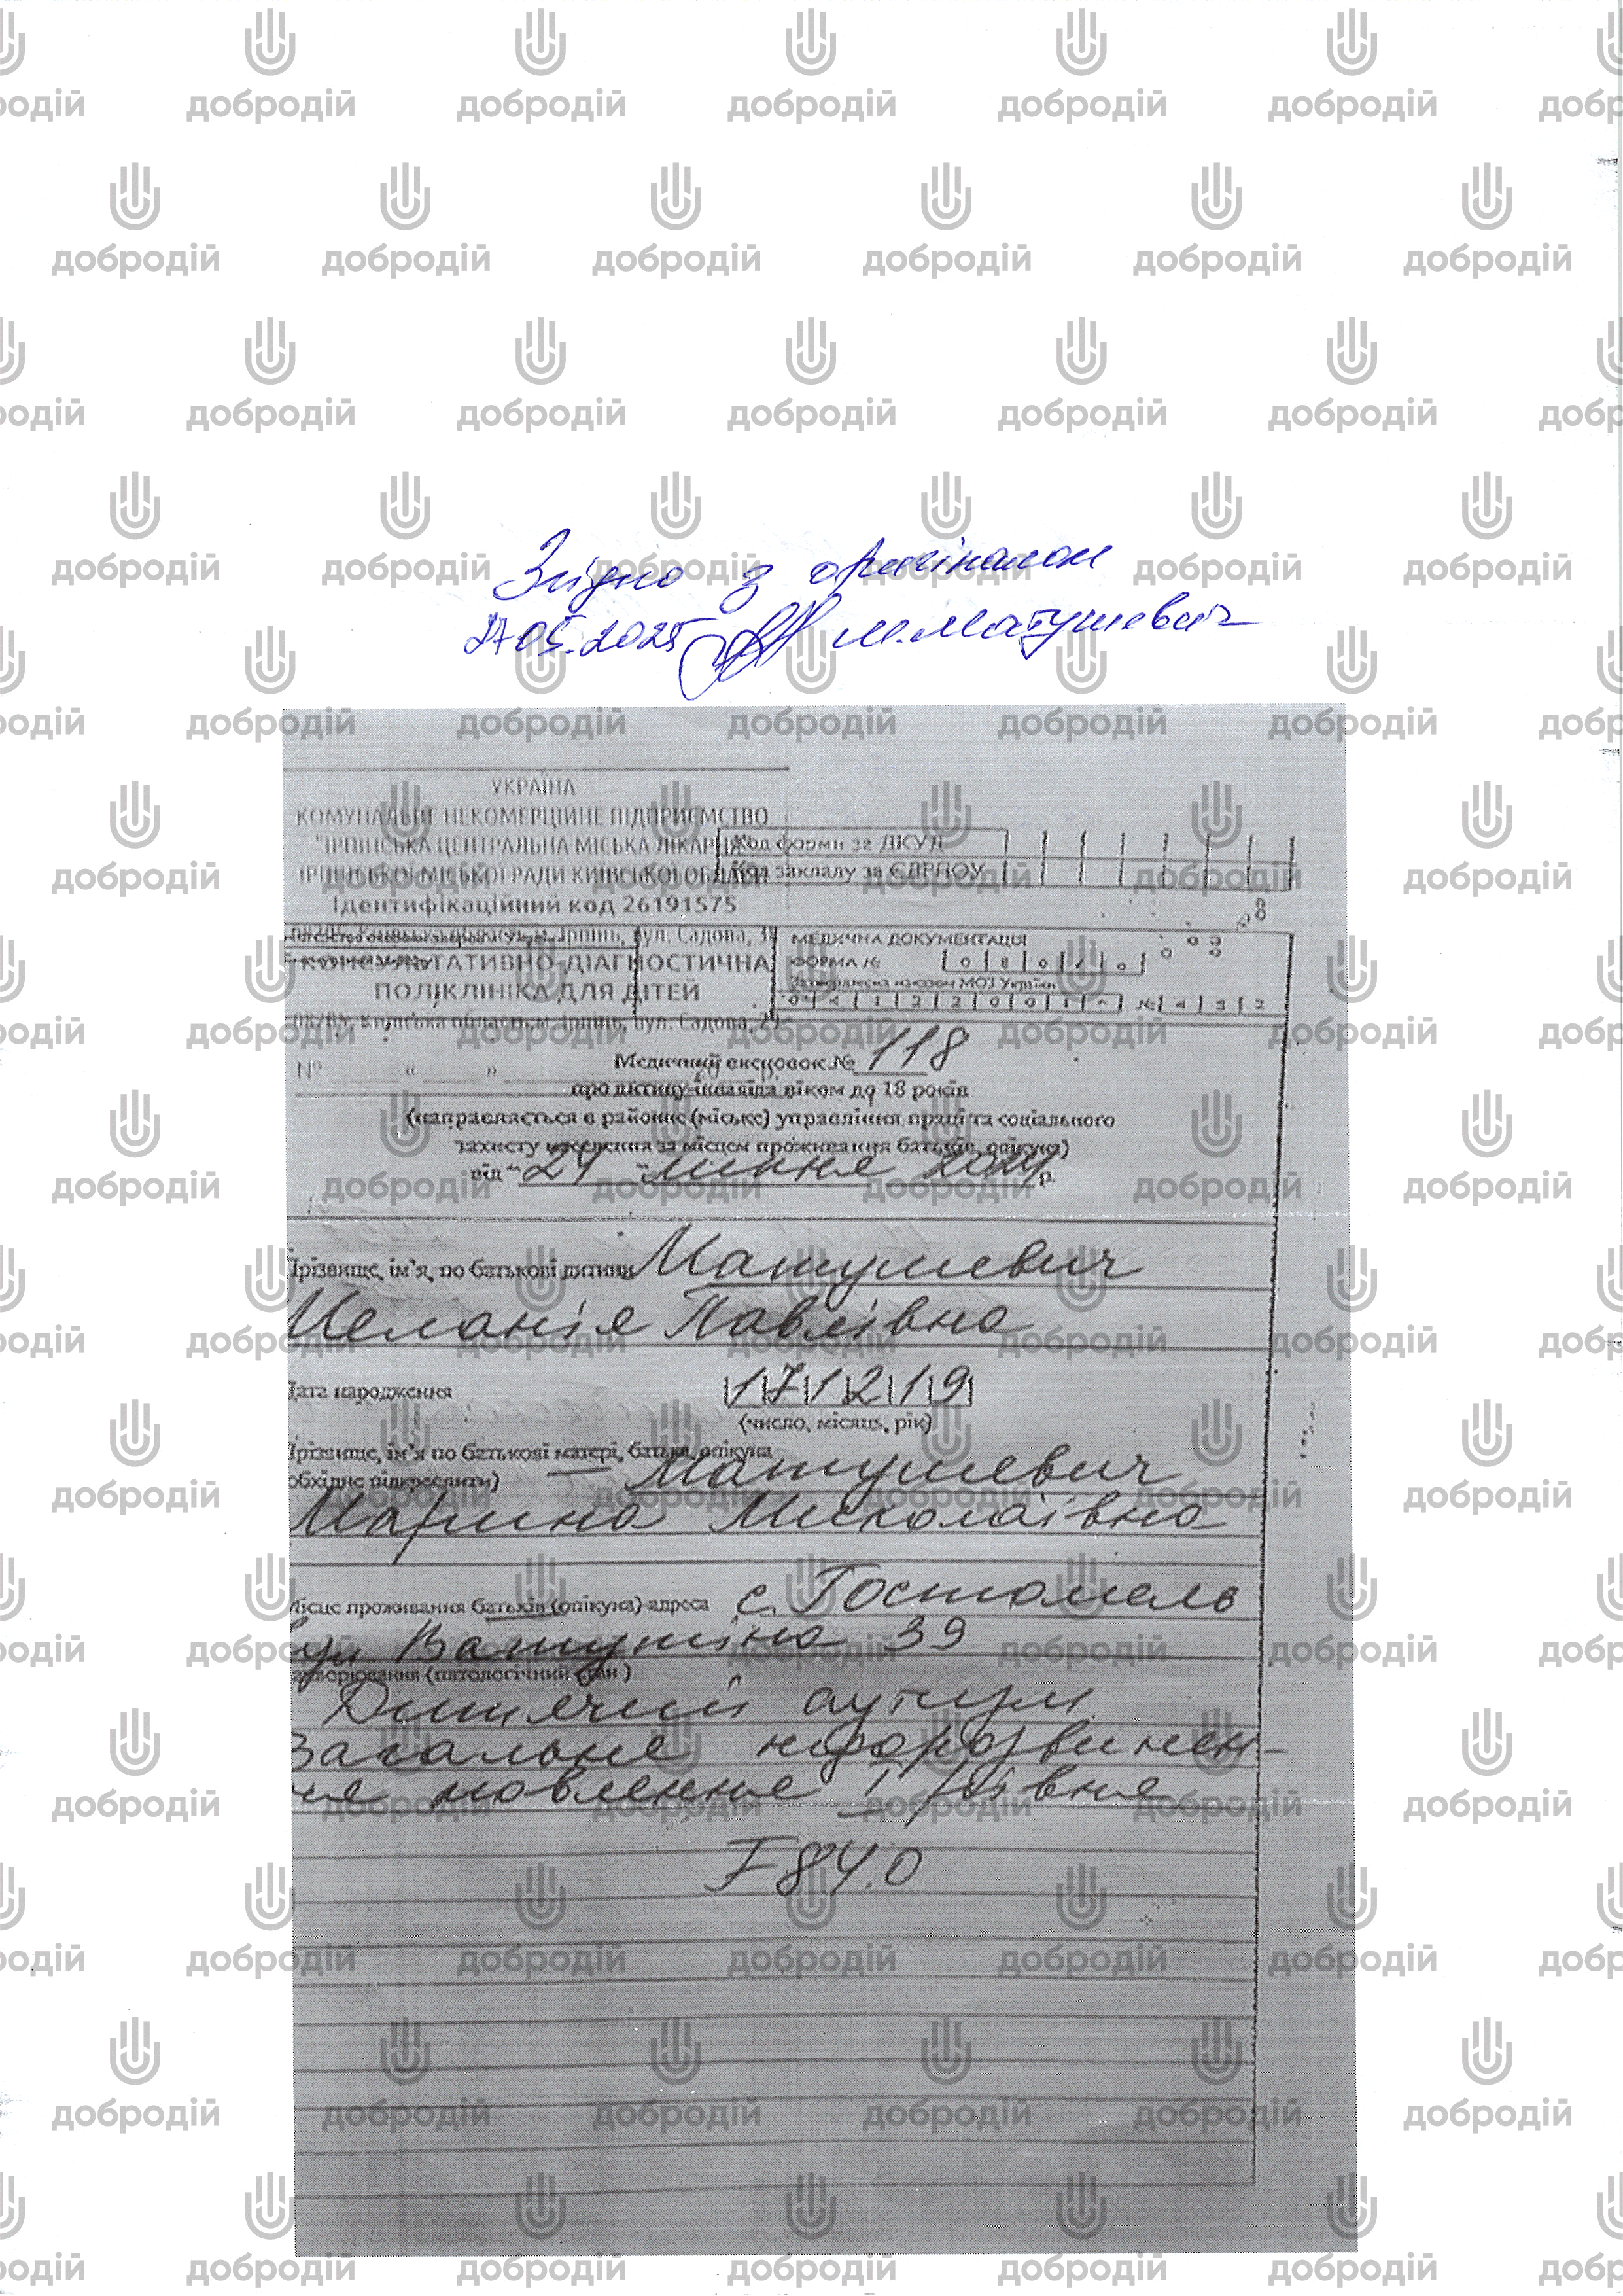 Згідно з оригіналом
27.05.2025 М.Матушевич
УКРАЇНА
КОМУНАЛЬНЕ НЕКОМЕРЦІЙНЕ ПІДПРИЄМСТВО
"ІРПІНСЬКА ЦЕНТРАЛЬНА МІСЬКА ЛІКАРНЯ"
ІРПІНСЬКОЇ МІСЬКОЇ РАДИ КИЇВСЬКОЇ ОБЛАСТІ
Ідентифікаційний код 26191575
Код форми за ДКУД
Код закладу за ЄДРПОУ
Ірпінь, вул. Садова, 38
КОНСУЛЬТАТИВНО-ДІАГНОСТИЧНА
ПОЛІКЛІНІКА ДЛЯ ДІТЕЙ
Київська область, м. Ірпінь, вул. Садова,
МЕДИЧНА ДОКУМЕНТАЦІЯ
ФОРМА №
Затверджена наказом МОЗ України
№ " "
Медичний висновок № 118
про дитину-інваліда віком до 18 років
(направляється в районне (міське) управління праці та соціального
захисту населення за місцем проживання батьків, опікуна)
від "24" липня 2024 р.
Прізвище, ім'я, по батькові дитини Матушевич
Меланія Павлівна
Дата народження 171219
(число, місяць, рік)
Прізвище, ім'я по батькові матері, батька, опікуна
обхідне підкреслити) — Матушевич
Марина Миколаївна
Місце проживання батьків (опікуна) адреса с. Гостомель
вул Ватутіна 39
Захворювання (патологічний стан)
Дитячий аутизм
Загальне недорозвинен-
ня мовлення I рівня
F84.0
добродій